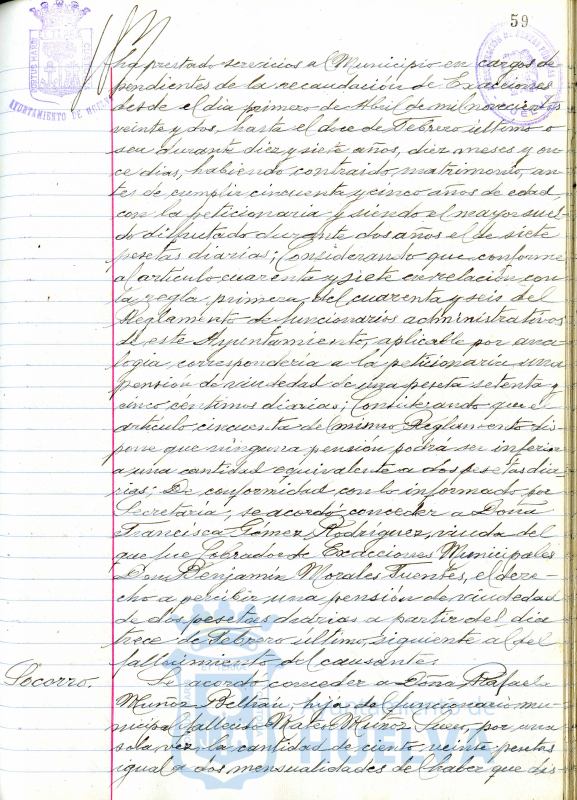 59
AYUNTAMIENTO DE HUELVA
ha prestado servicios al Municipio en cargos de
pendientes de la recaudación de Exacciones
desde el día primero de Abril de mil novecientos
veinte y dos, hasta el doce de Febrero último o
sea durante diez y siete años, diez meses y on
ce días, habiendo contraido matrimonio, an
tes de cumplir cincuenta y cinco años de edad,
con la peticionaria y siendo el mayor suel
do disfrutado durante dos años el de siete
pesetas diarias; Considerando que conforme
al artículo cuarenta y siete en relación con
la regla primera del cuarenta y seis del
Reglamento de funcionarios administrativos
de este Ayuntamiento, aplicable por ana
logia, correspondería a la peticionaria una
pensión de viudedad de una peseta setenta y
cinco céntimos diarias; Considerando que el
artículo cincuenta del mismo Reglamento dis
pone que ninguna pensión podrá ser inferior
a una cantidad equivalente a dos pesetas dia
rias; De conformidad con lo informado por
Secretaría, se acordó conceder a Doña
Francisca Gómez Rodríguez, viuda del
que fue Cobrador de Exacciones Municipales
Don Benjamín Morales Fuentes, el dere-
cho a percibir una pensión de viudedad
de dos pesetas diarias a partir del día
trece de Febrero último, siguiente al del
fallecimiento del causante.
Socorro. Se acordó conceder a Doña Rafaela
Muñoz Beltrán, hija del funcionario mu
nicipal fallecido Mateo Muñoz, por una
sola vez la cantidad de ciento veinte pesetas
igual a dos mensualidades de haber que dis
HUELVA